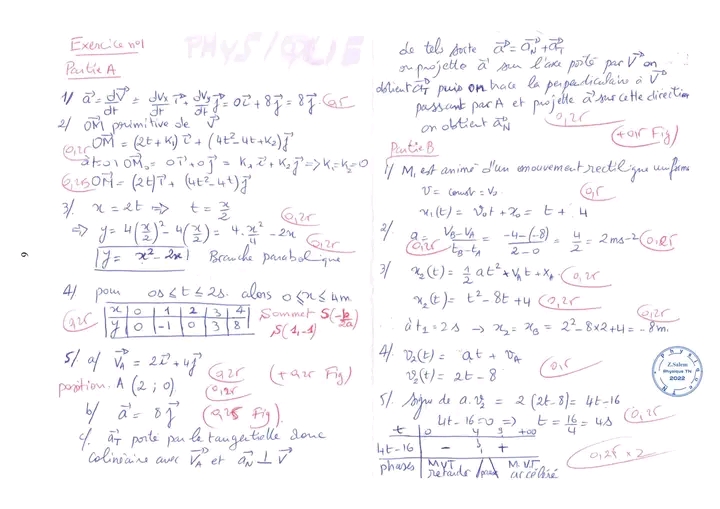 Exercice n°1
PHYSIQUE
Partie A
1/ a⃗ = dV⃗/dt = dVx/dt i⃗ + dVy/dt j⃗ = 0 i⃗ + 8 j⃗ = 8 j⃗. 0,25
2/ OM⃗ primitive de V⃗
0,25 OM⃗ = (2t + K1) i⃗ + (4t² - 4t + K2) j⃗
à t=0 OM⃗0 = 0 i⃗ + 0 j⃗ = K1 i⃗ + K2 j⃗ => K1 = K2 = 0
0,25 OM⃗ = (2t) i⃗ + (4t² - 4t) j⃗
3/ x = 2t => t = x/2 0,25
=> y = 4(x/2)² - 4(x/2) = 4 · x²/4 - 2x 0,25
y = x² - 2x Branche parabolique
4/ pour 0s ≤ t ≤ 2s alors 0 ≤ x ≤ 4m
0,25 x | 0 | 1 | 2 | 3 | 4 Sommet S(-b/2a)
y | 0 | -1 | 0 | 3 | 8 S(1,-1)
5/ a/ V⃗A = 2 i⃗ + 4 j⃗ 0,25 (+0,25 Fig)
position. A (2 ; 0) 0,25
b/ a⃗ = 8 j⃗ (0,25 Fig)
c/. a⃗T porté par la tangentielle donc
colinéaire avec V⃗A et a⃗N ⊥ V⃗
6
de tels sorte a⃗ = a⃗N + a⃗T
on projette a⃗ sur l'axe porté par V⃗ on
obtient a⃗T puis on trace la perpendiculaire à V⃗
passant par A et projette a⃗ sur cette direction
on obtient a⃗N 0,25
(+0,5 Fig)
Partie B
1/ M1 est animé d'un mouvement rectiligne uniforme
V = const = V0 0,5
x1(t) = V0t + x0 = t + 4
2/ a = VB - VA / tB - tA = -4-(-8) / 2-0 = 4/2 = 2 ms-2 0,25
0,25
3/ x2(t) = 1/2 at² + VA t + xA. 0,25
x2(t) = t² - 8t + 4 0,25
à t1 = 2s → x2 = xB = 2² - 8x2 + 4 = -8m. 0,25
4/. V2(t) = at + VA
V2(t) = 2t - 8 0,5
Z.Salem
Physique Tle
2022
5/. Signe de a.V2 = 2(2t-8) = 4t - 16
4t - 16 = 0 => t = 16/4 = 4s 0,25
t | 0 4 +∞
4t-16 | - 0 +
phases | MVT retardé | MVT accéléré 0,25 x 2